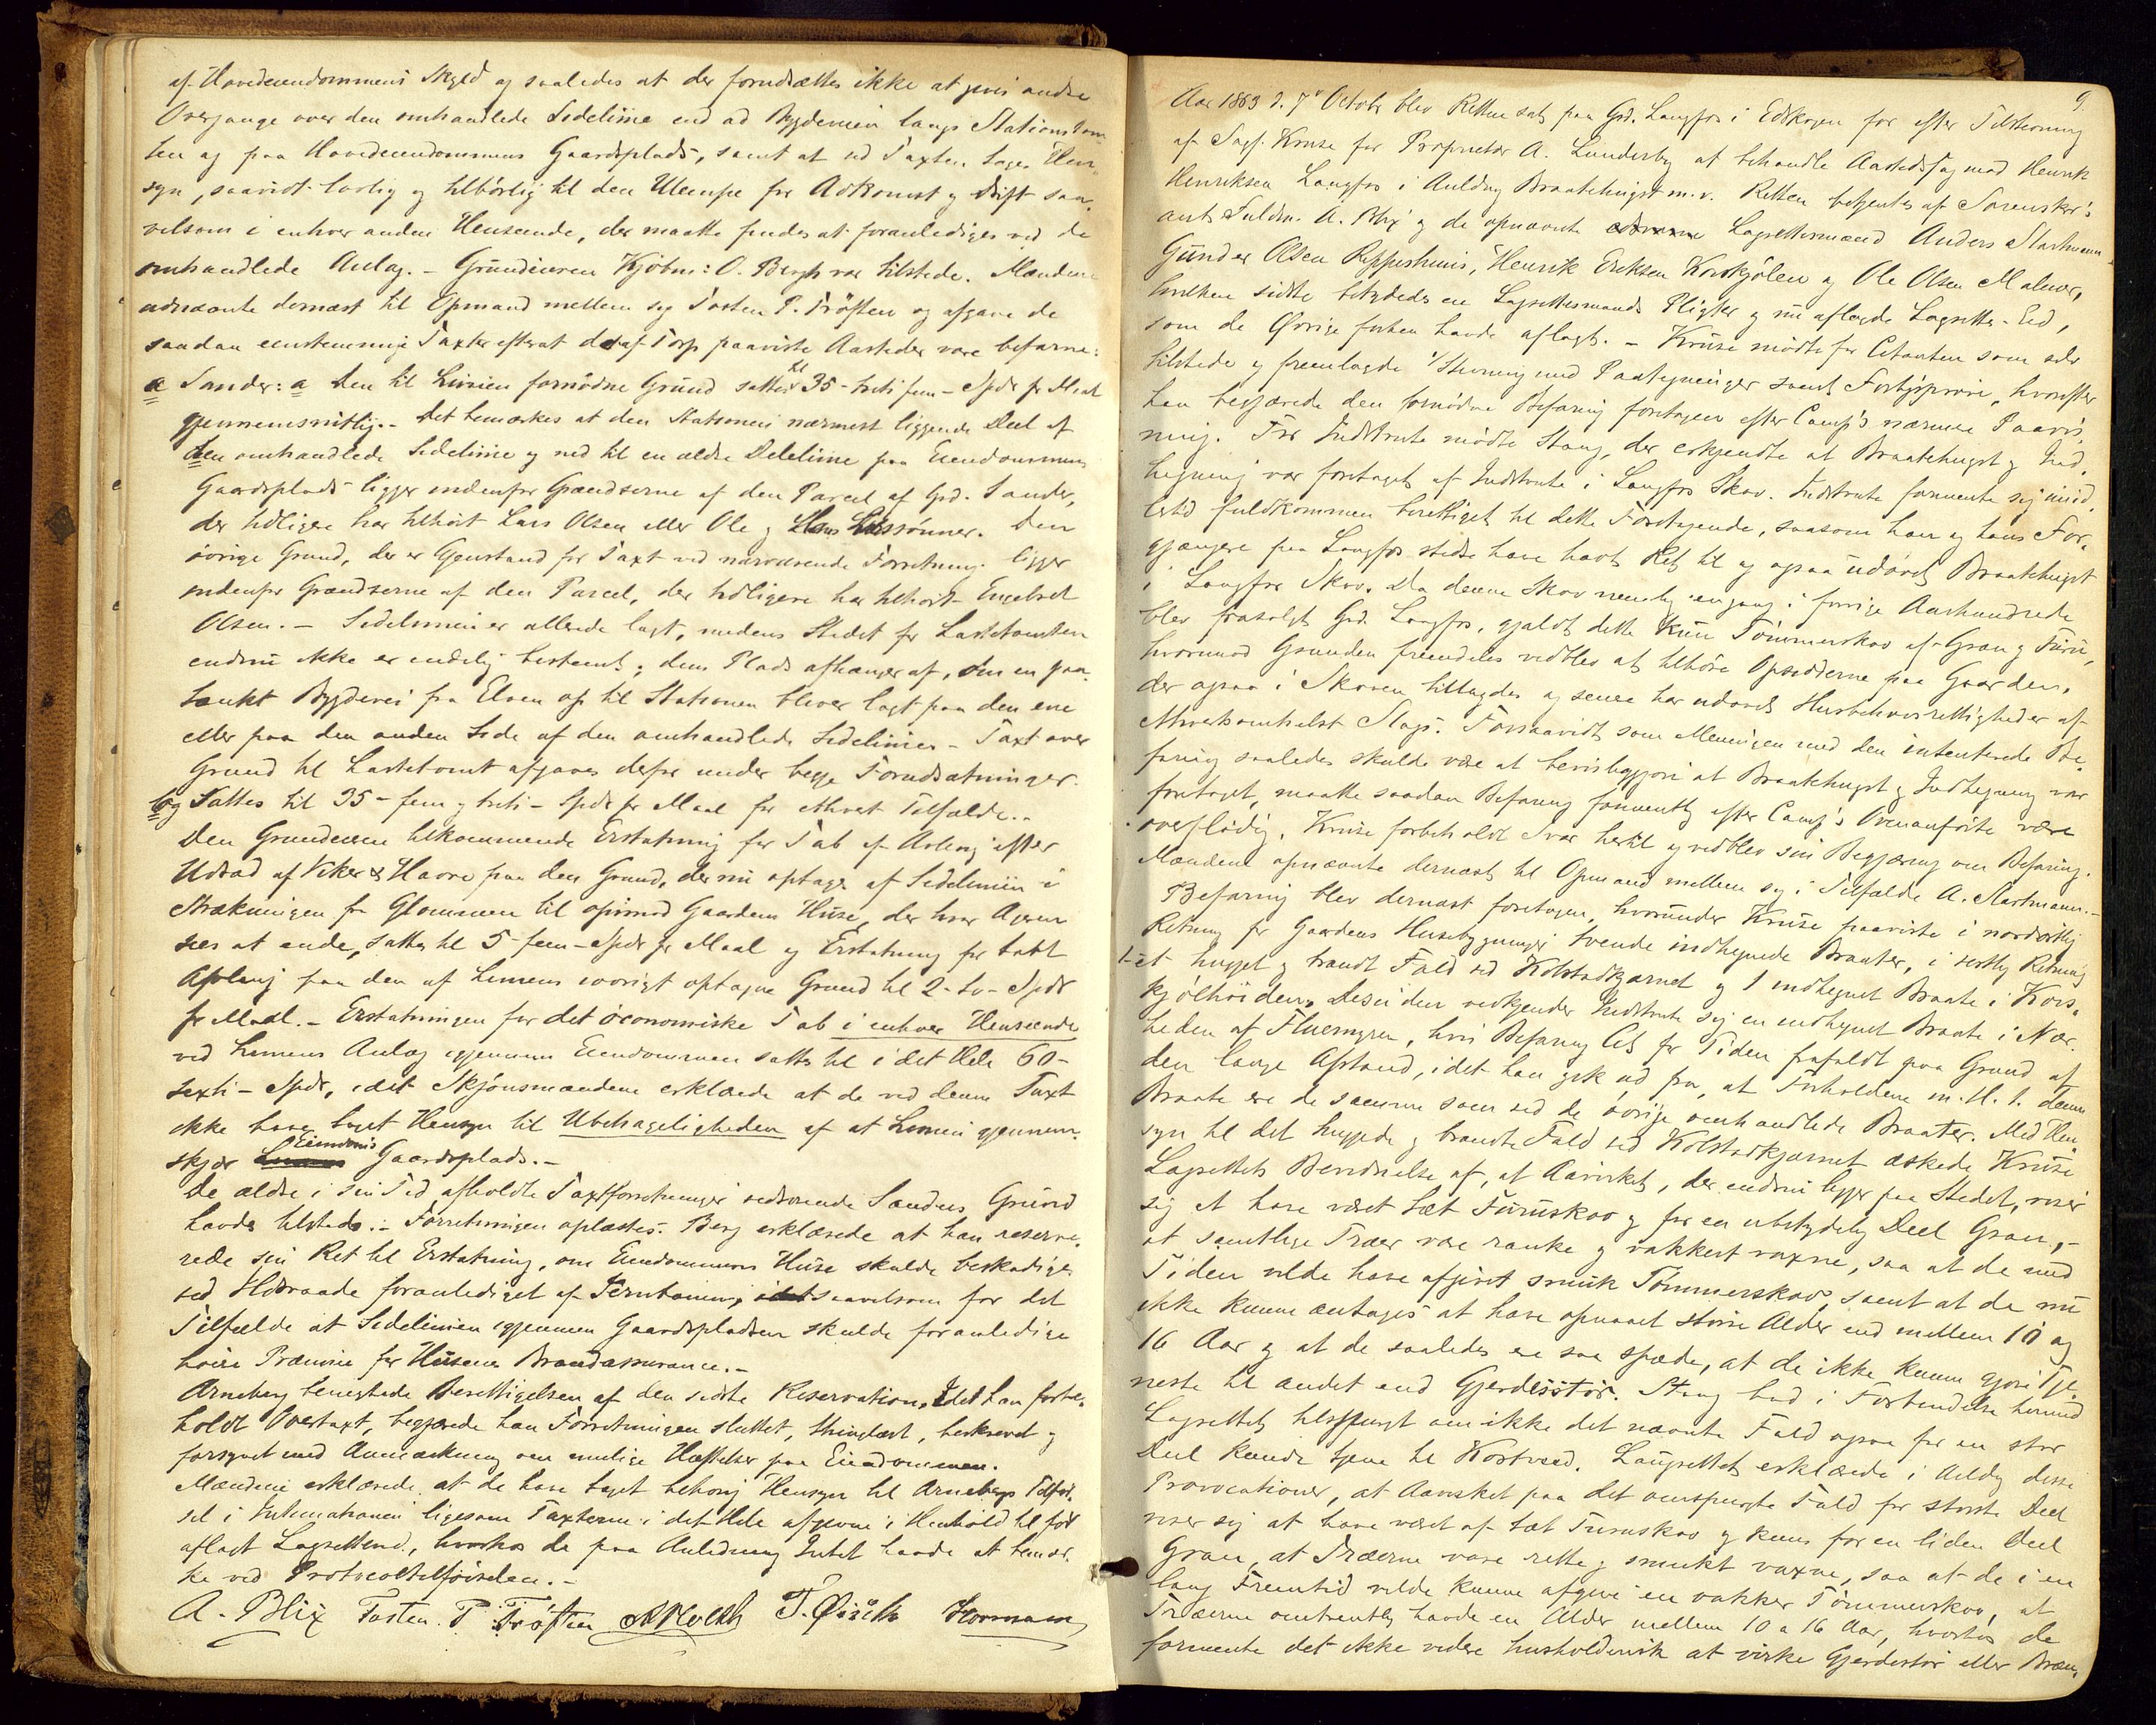 af Hovedeiendommens Skyld og saaledes at der forudsættes ikke at gives andre
Overgange over den omhandlede Sidelinie end ad Bygdeveien langs Stationstom-
ten og paa Hovedeiendommens Gaardsplads, samt at ved Taxten tages Hen-
syn, saavidt lovlig og tilbørlig til den Ulempe for Adkomst og Drift saa-
velsom i enhver anden Henseende, der maatte findes at foranlediges ved de
omhandlede Anlæg. – Grundeieren Kjøbm: O. Bergh var tilstede. Mændene
udnævnte dernæst til Opmand mellem sig Tosten P. Trøften og afgave de
saadan eenstemmig Taxter efterat de af Torp paaviste Aasteder vare befarne:
a Sander: a Den til Linien fornødne Grund sættes til 35 – treti fem – Spdr pr Maal
gjennemsnitlig. – Det bemærkes at den Stationen nærmest liggende Deel af
den omhandlede Sidelinie og ned til en ældre Delelinie paa Eiendommens
Gaardsplads ligger indenfor Grændserne af den Parcel af Grd. Sander,
der tidligere har tilhørt Lars Olsen eller Ole og Larssønner. Den
øvrige Grund, der er Gjenstand for Taxt ved nærværende Forretning ligger
indenfor Grændserne af den Parcel, der tidligere har tilhørt Engebret
Olsen. – Sidelinien er allerede lagt, medens Stedet for Lastetomten
endnu ikke er endelig bestemt; dens Plads afhænger af, om en paa-
tænkt Bygdevei fra Elven op til Stationen bliver lagt paa den ene
eller paa den anden Side af den omhandlede Sidelinie – Taxt over
Grund til Lastetomt afgaves derfor under begge Forudsætninger
og sattes til 35 – fem og treti – Spdr pr Maal for ethvert Tilfælde. –
Den Grundeieren tilkommende Erstatning for Tab af Avling efter
Udsæd af Viker & Havre paa den Grund, der nu optages af Sidelinien i
Strækningen fra Glommen til opimod Gaardens Huse, der hvor Ageren
sees at ende, sattes til 5 – fem – Spdr pr Maal og Erstatning for tabt
Avling paa den af Linien iøvrigt optagne Grund til 2 – to – Spdr
pr Maal. – Erstatningen for det øconomiske Tab i enhver Henseende
ved Liniens Anlæg igjennem Eiendommen sattes til i det Hele 60 –
sexti – Spdr, idet Skjønsmændene erklærede at de ved denne Taxt
ikke have taget Hensyn til Ubehageligheden af at Linien gjennem-
skjær Eiendommens Gaardsplads. –
De ældre i sin Tid afholdte Taxtforretninger vedrørende Sanders Grund
havdes tilstede. – Forretningen oplæstes. Berg erklærede at han reserve-
rede sin Ret til Erstatning, om Eiendommens Huse skulde beskadiges
ved Ildsvaade foranlediget af Jernbanen, saavelsom for det
Tilfælde at Sidelinien igjennem Gaardspladsen skulde foranledige
høiere Præmie for Husenes Brandassurance. –
Arneberg benegtede Berettigelsen af den sidste Reservation. Idet han forbe-
holdt Overtaxt, begjærede han Forretningen sluttet, thinglæst, beskrevet og
forsynet med Anmærkning om mulige Hæftelser paa Eiendommen.
Mændene erklærede at de have taget behørig Hensyn til Arnebergs Tilfør-
sel i Introduktionen ligesom Taxterne i det Hele afgivne i Henhold til før
aflagt Lagretteed, hvorhos de paa Anledning Intet havde at bemær-
ke ved Protocoltilførselen. –
A. Blix Tosten. P. Trøften
9.
Aar 1863 d. 7de Octobr blev Retten sat paa Grd. Langfos i Edskogen for efter Tilstævning
af Sagf. Kruse for Proprietær A. Lunderby at behandle Aastedssag mod Henrik
Henriksen Langfos i Anledng Braatehugst m.v. Retten betjentes af Sorenskr's
aut. Fuldm. A. Blix og de opnævnte Lagrettesmænd Anders Slastmann
Gunder Olsen Reppeshuus, Henrik Eriksen Korskjølen og Ole Olsen Malmer,
hvilken sidste betydedes en Lagrettesmands Pligter og nu aflagde Lagrette-Eed,
som de Øvrige forhen havde aflagt. – Kruse mødte for Citanten som selv
tilstede og fremlagde Stævning med Paategninger samt Forligsprøve, hvorefter
han begjærede den fornødne Befaring foretagen efter Camp's nærmere Paavis-
ning. For Indstevnte mødte Stang, der erkjendte at Braatehugst og Ind-
hegning var foretaget af Indstevnte i Langfos Skov. Indstevnte formente sig imid-
lertid fuldkommen berettiget til dette Foretagende, saasom han og hans For-
gjængere paa Langfos stedse have havt Ret til og ogsaa udøvet Braatehugst
i Langfos Skov. Da denne Skov nemlig engang i forrige Aarhundrede
blev frasolgt Grd. Langfos, gjaldt dette kun Tømmerskov af Gran og Furu,
hvorimod Grunden fremdeles vedblev at tilhøre Opsidderne paa Gaarden,
der ogsaa i Skoven tillagdes og senere har udøvet Husbehovsrettigheder af
ethvertsomhelst Slags. Forsaavidt som Meningen med den intenterede Be-
faring saaledes skulde være at bevisliggjøre at Braatehugst og Indhegning var
foretaget, maatte saadan Befaring formentlig efter Camp's Ovenanførte være
overflødig. Kruse forbeholdt Svar hertil og vedblev sin Begjæring om Befaring.
Mændene opnævnte dernæst til Opmand mellem sig i Tilfælde A. Slastmann. –
Befaring blev dernæst foretagen, hvorunder Kruse paaviste i nordøstlig
Retning for Gaardens Husebygninger tvende indhegnede Braater, i vestlig Retning
1 – et hugget og brændt Fald ved Kolstadtjernet og 1 indhegnet Braate i Kors-
kjølhøiden. Desuden vedkjender Indstevnte sig en indhegnet Braate i Nær-
heden af Fluemyren, hvis Befaring Cit. for Tiden frafaldt paa Grund af
den lange Afstand, idet han gik ud fra, at Forholdene m. H. t. denne
Braate ere de samme som ved de øvrige omhandlede Braater. Med Hen-
syn til det huggede og brændte Fald ved Kolstadtjernet æskede Kruse
Lagrettets Bevidnelse af, at Aavirket, der endnu ligger paa Stedet, viser
sig at have været tæt Furuskov og for en ubetydelig Deel Gran, –
at samtlige Træer vare ranke og vakkert voxne, saa at de med
Tiden vilde have afgivet smuk Tømmerskov, samt at de nu
ikke kunne antages at have opnaaet større Alder end mellem 10 og
16 Aar og at de saaledes ere saa spæde, at de ikke kunne gjøre Tje-
neste til andet end Gjerdesstør. Stang bad i Forbindelse hermed
Lagrettet tilspurgt om ikke det nævnte Fald ogsaa for en stor
Deel kunde tjene til Kortved. Laugrettet erklærede i Anledng disse
Provocationer, at Aavirket paa det omspurgte Fald for største Deel
viser sig at have været af tæt Furuskov og kuns for en liden Deel
Gran, at Træerne vare rette og smukt voxne, saa at de i en
lang Fremtid vilde kunne afgive en vakker Tømmerskov, at
Træerne omtrentlig havde en Alder mellem 10 a 16 Aar, hvorhos de
formente det ikke videre husholdersk at virke Gjerdestør eller Bræn-